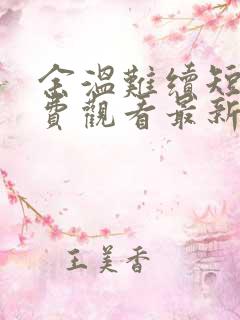 余溫難續短
費觀看最新
王美香